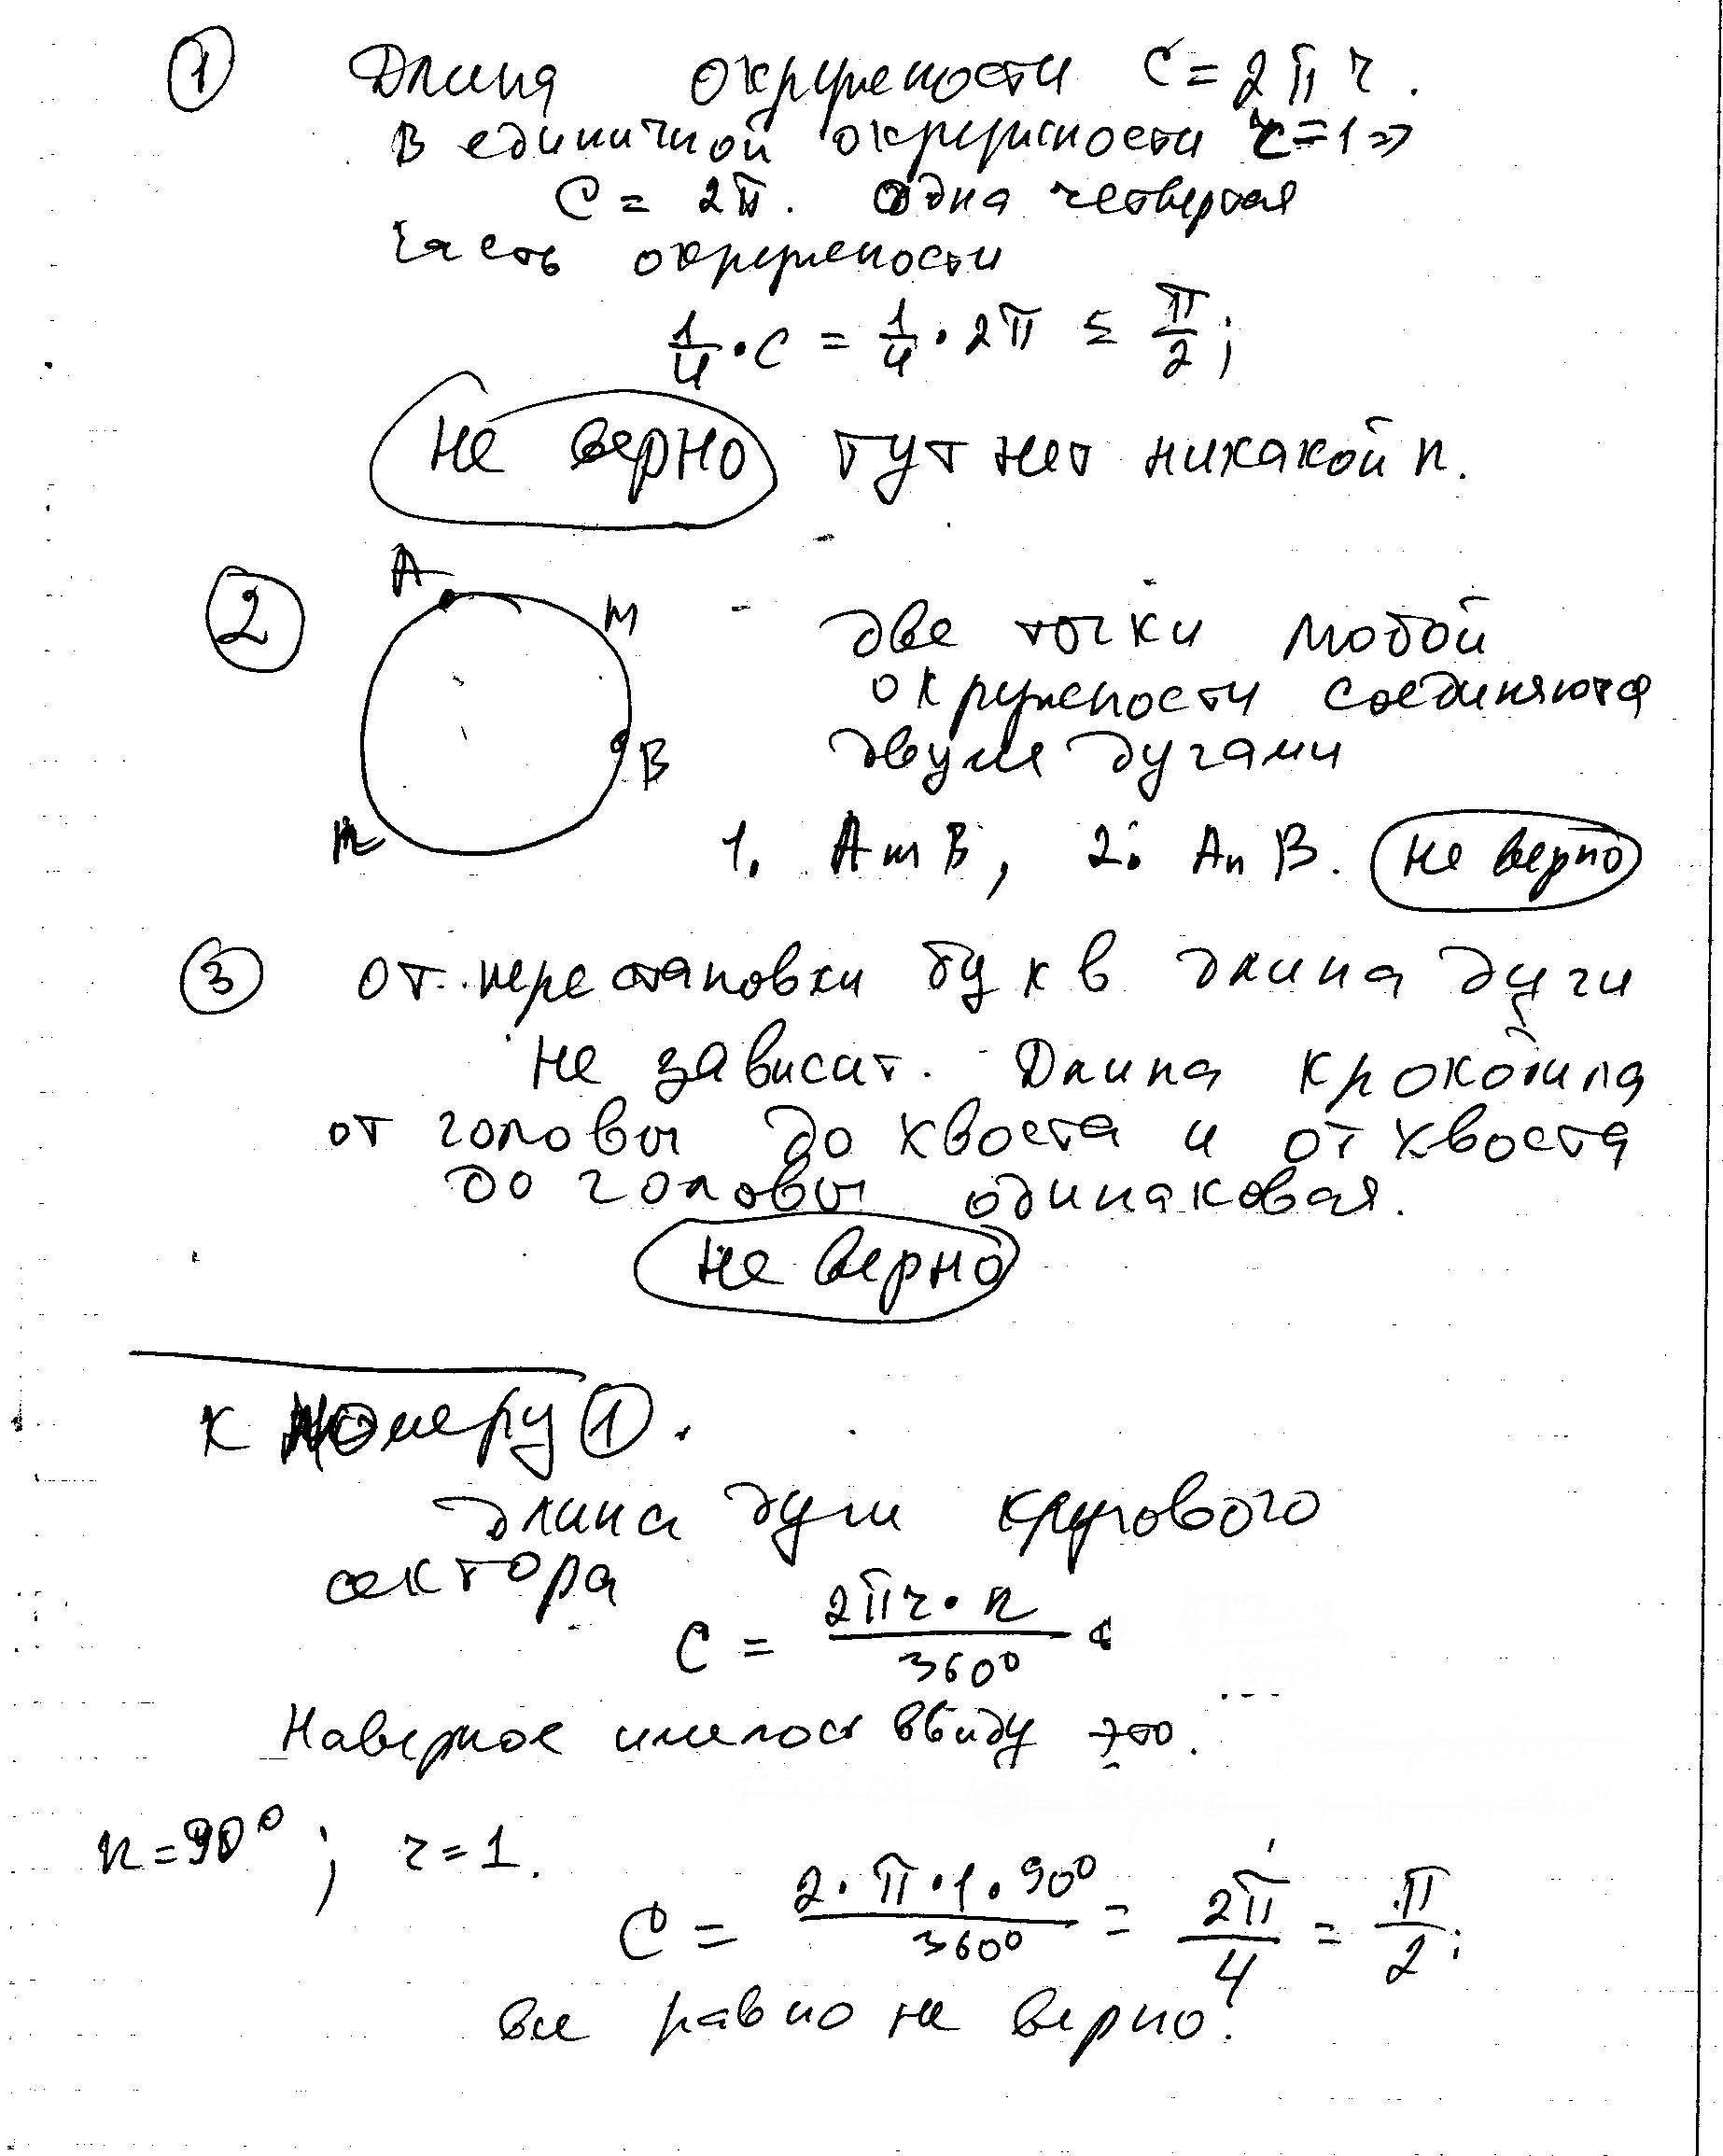 ① Длина окружности C = 2πr.
В единичной окружности r = 1 ⇒
C = 2π. Одна четвертая
часть окружности
1/4 · C = 1/4 · 2π = π/2;
Не верно тут нет никакой n.
②
A
M
B
n
две точки любой
окружности соединяются
двумя дугами
1. AmB, 2. AnB. Не верно
③ От перестановки букв длина дуги
не зависит. Длина крокодила
от головы до хвоста и от хвоста
до головы одинаковая.
Не верно
К номеру ①.
Длина дуги кругового
сектора
C = 2πr · n / 360°
Наверное имелось ввиду это.
n = 90°; r = 1.
C = 2 · π · 1 · 90° / 360° = 2π/4 = π/2;
все равно не верно.